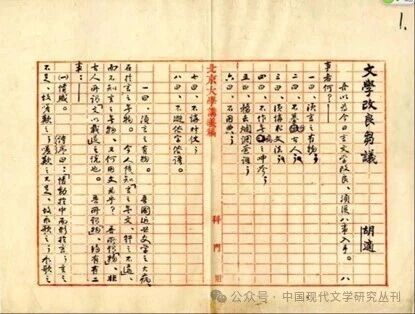 1.
文學改良芻議 胡適
吾以為今日言文學改良，須從八事入手。八
事者何？
一曰、須言之有物。
二曰、不摹古人。
三曰、須講求文法。
四曰、不作之呻吟。
五曰、務去爛調套語。
六曰、不用典。
北京大學講義稿 科門
七曰、不講對仗。
八曰、不避俗字俗語。
一曰、須言之有物。 吾國近世文學之大病，
在於言之無物。今人徒知言之無文，行之不遠，
而不知言之無物，又何用文為乎？吾所謂物，非
古人所謂文以載道之說也。吾所謂物，約有二
事：
(一)情感。 詩序曰：情動於中而形於言。言之
不足，故嗟歎之。嗟歎之不足，故永歌之。永歌之
公众号·中国现代文学研究丛刊